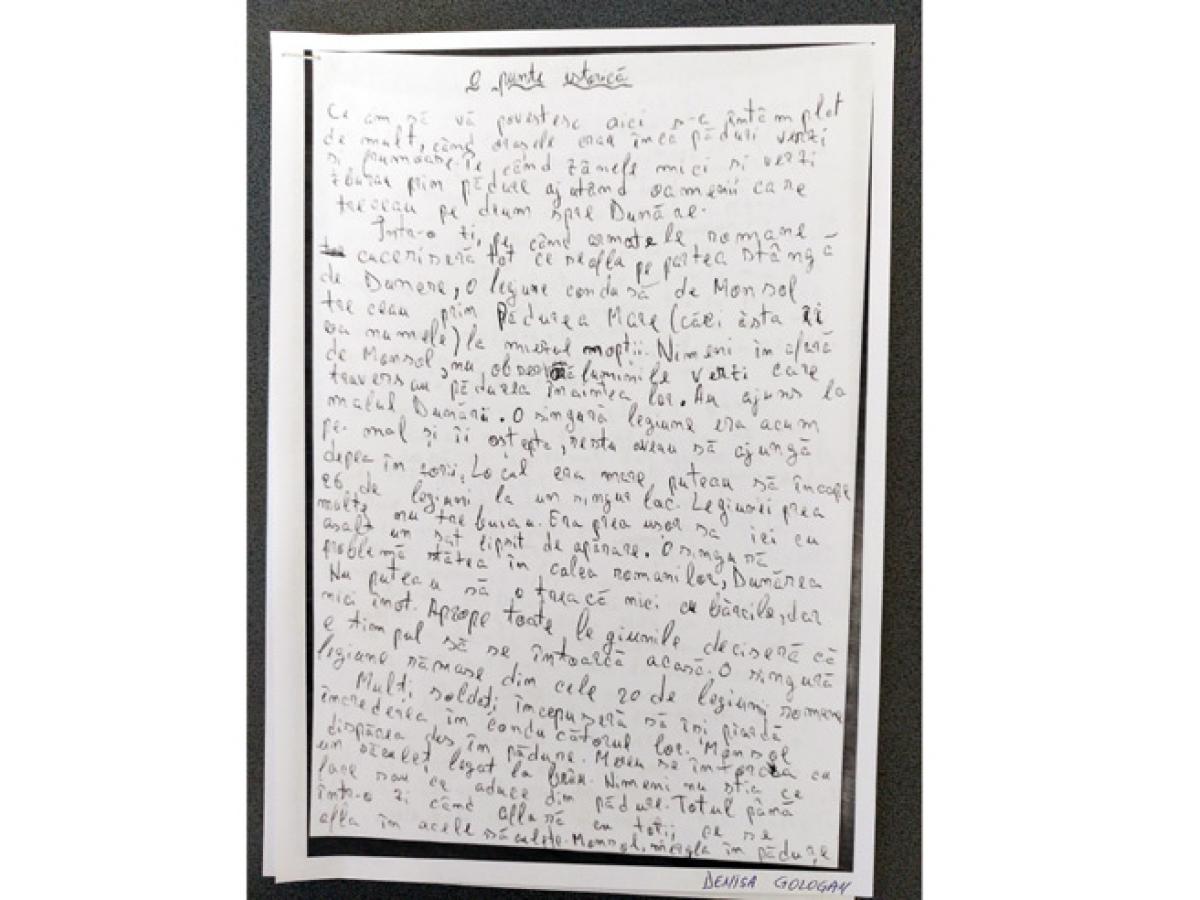 O punte istorică
Ce am să vă povestesc aici s-a întâmplat
de mult, când orașele erau încă păduri verzi
și frumoase. Pe când zânele mici si verzi
zburau prin pădure ajutând oamenii care
treceau pe drum spre Dunăre.
Într-o zi, pe când armatele romane
cuceriseră tot ce se afla pe partea stângă
de Dunere, O legiune condusă de Monsol
treceau prim Pădurea Mare (căci ăsta îi
era numele) la miezul nopții. Nimeni în afară
de Monsol, nu, observă luminile verzi care
traversau pădurea înaintea lor. Au ajuns la
malul Dunării. O singură legiune era acum
pe mal și îi oștește, restu aveau să ajungă
depea în zorii. Locul era mare, puteau să încape
26 de legiuni la un singur loc. Legiunii prea
multe nu trebuiau. Era prea usor sa iei cu
asalt un sat lipsit de apărare. O singură
problemă stătea în calea romanilor, Dunărea
Nu puteau să o treacă nici cu bărcile, dar
nici înot. Aprope toate legiunile deciseră că
e timpul să se întoarcă acasă. O singură
legiune rămase din cele 20 de legiuni romane
Mulți soldați începuseră să își piardă
încrederea în conducătorul lor. Monsol
dispărea des în pădure. Mereu se întorcea cu
un săculeț legat la brâu. Nimeni nu stia ce
face sau ce aduce din pădure. Totul până
într-o zi când aflară cu toții, ce se
afla în acele săculețe. Monsol, mergea în pădure
DENISA GOLOGAN